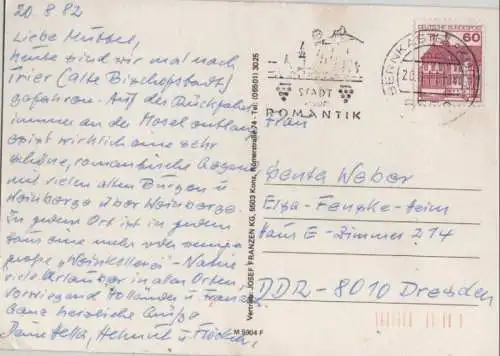 20.8.82
Liebe Muttel,
heute sind wir mal nach
Trier (alte Bischofsstadt)
gefahren. Auf der Rückfahrt
immer an der Mosel entlang
es ist wirklich eine sehr
schöne, romantische Gegend
mit vielen alten Burgen u
Weinberge über Weinberge.
In jedem Ort ist in jedem
Haus eine mehr oder weniger
große „Weinkellerei"-
viele Urlauber in allen Orten,
vorwiegend Holländer u. Franz.
Ganz herzliche Grüße
Deine Helmut u.
Vertrieb: JOSEF FRANZEN KG, 5503 Konz, Römerstraße 74 - Tel.: (06501) 3025
M 5904 F
STADT
DER
ROMANTIK
BERNKASTEL
20.
DEUTSCHE BUNDESPOST
60
Frau
Weber
Heim
Haus E - Zimmer 214
DDR - 8010 Dresden